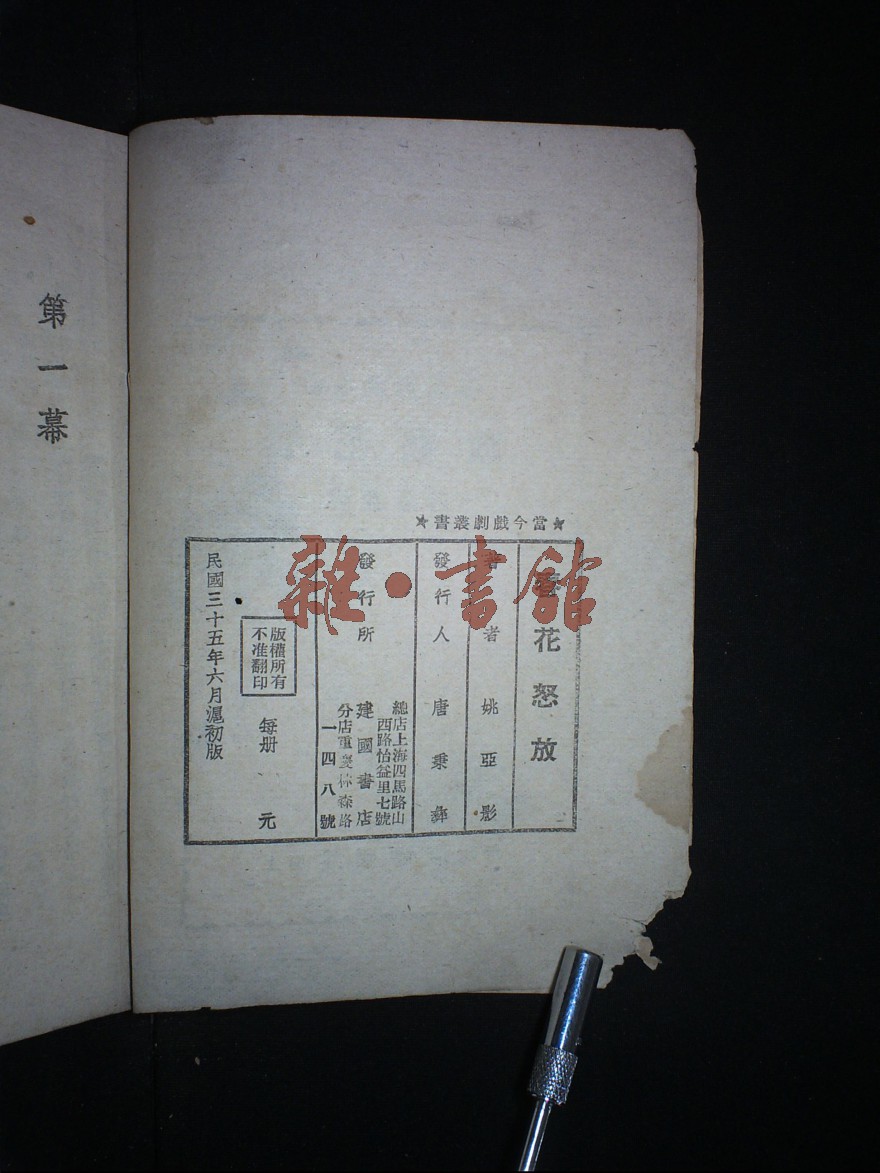 ★當今戲劇叢書★
花怒放
著者 姚亞影
發行人 唐秉彝
發行所 建國書店
總店上海四馬路山
西路怡益里七號
分店重慶林森路
一四八號
版權所有
不准翻印
每册 元
民國三十五年六月滬初版
第一幕
雜·書館